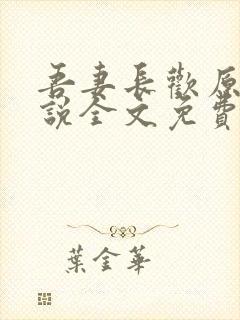 吾妻長歡原
說全文免費
葉金華